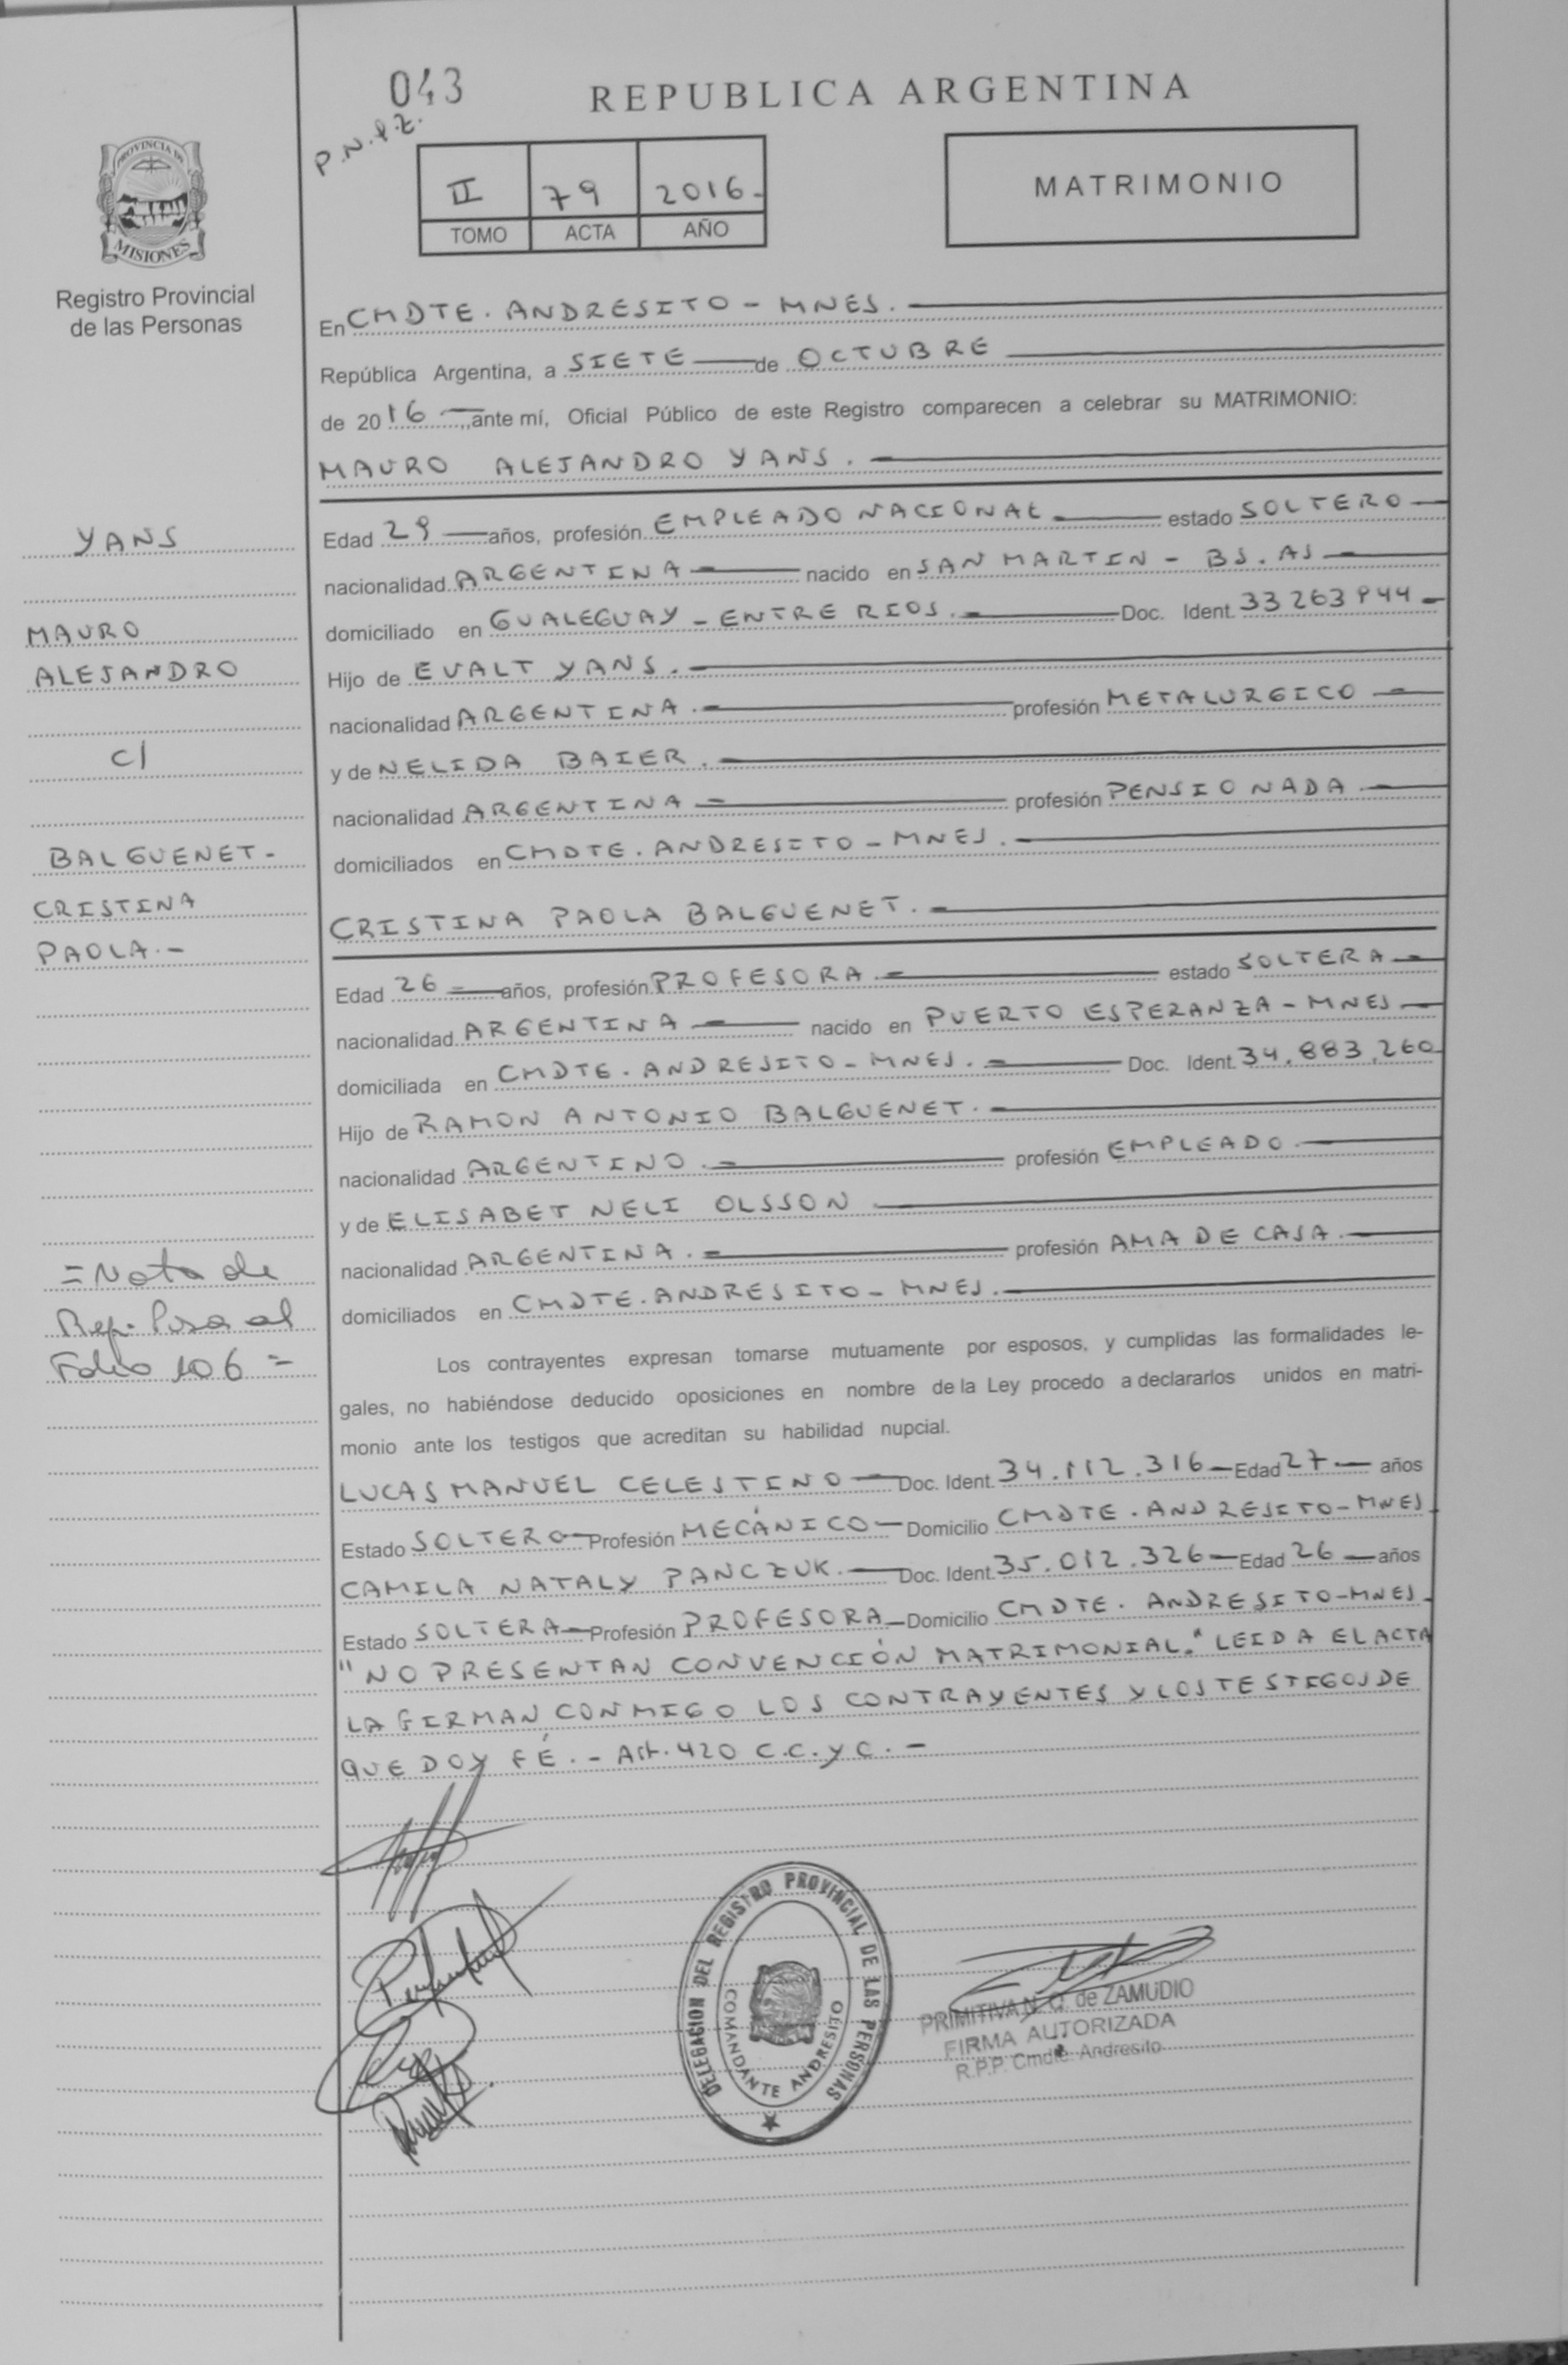 043
P.N.&Z.
REPUBLICA ARGENTINA
II 79 2016.-
TOMO ACTA AÑO
MATRIMONIO
PROVINCIA DE
MISIONES
Registro Provincial
de las Personas
En CMDTE. ANDRESITO - MNES.
República Argentina, a SIETE de OCTUBRE
de 2016 ante mí, Oficial Público de este Registro comparecen a celebrar su MATRIMONIO:
MAURO ALEJANDRO YANS.
Edad 29 años, profesión EMPLEADO NACIONAL estado SOLTERO
nacionalidad ARGENTINA nacido en SAN MARTIN - BS. AS
domiciliado en GUALEGUAY - ENTRE RIOS. Doc. Ident. 33263944
Hijo de EVALT YANS.
nacionalidad ARGENTINA. profesión METALURGICO
y de NELIDA BAIER.
nacionalidad ARGENTINA profesión PENSIONADA
domiciliados en CMDTE. ANDRESITO - MNES.
CRISTINA PAOLA BALGUENET.
Edad 26 años, profesión PROFESORA estado SOLTERA
nacionalidad ARGENTINA nacido en PUERTO ESPERANZA - MNES
domiciliada en CMDTE. ANDRESITO - MNES. Doc. Ident. 34.883.260
Hijo de RAMON ANTONIO BALGUENET.
nacionalidad ARGENTINO. profesión EMPLEADO
y de ELISABET NELI OLSSON
nacionalidad ARGENTINA. profesión AMA DE CASA
domiciliados en CMDTE. ANDRESITO - MNES.
Los contrayentes expresan tomarse mutuamente por esposos, y cumplidas las formalidades le-
gales, no habiéndose deducido oposiciones en nombre de la Ley procedo a declararlos unidos en matri-
monio ante los testigos que acreditan su habilidad nupcial.
LUCAS MANUEL CELESTINO Doc. Ident. 34.112.316 Edad 27 años
Estado SOLTERO Profesión MECÁNICO Domicilio CMDTE. ANDRESITO - MNES.
CAMILA NATALY PANCZUK. Doc. Ident. 35.012.326 Edad 26 años
Estado SOLTERA Profesión PROFESORA Domicilio CMDTE. ANDRESITO - MNES.
"NO PRESENTAN CONVENCIÓN MATRIMONIAL." LEIDA EL ACTA
LA FIRMAN CONMIGO LOS CONTRAYENTES Y LOS TESTIGOS DE
QUE DOY FÉ. - Art. 420 C.C. y C. -
YANS
MAURO
ALEJANDRO
C/
BALGUENET-
CRISTINA
PAOLA.-
=Nota de
Rep. Pasa al
Folio 106=
DELEGACION DEL REGISTRO PROVINCIAL DE LAS PERSONAS
COMANDANTE ANDRESITO
PRIMITIVA N. G. de ZAMUDIO
FIRMA AUTORIZADA
R.P.P. Cmdte. Andresito